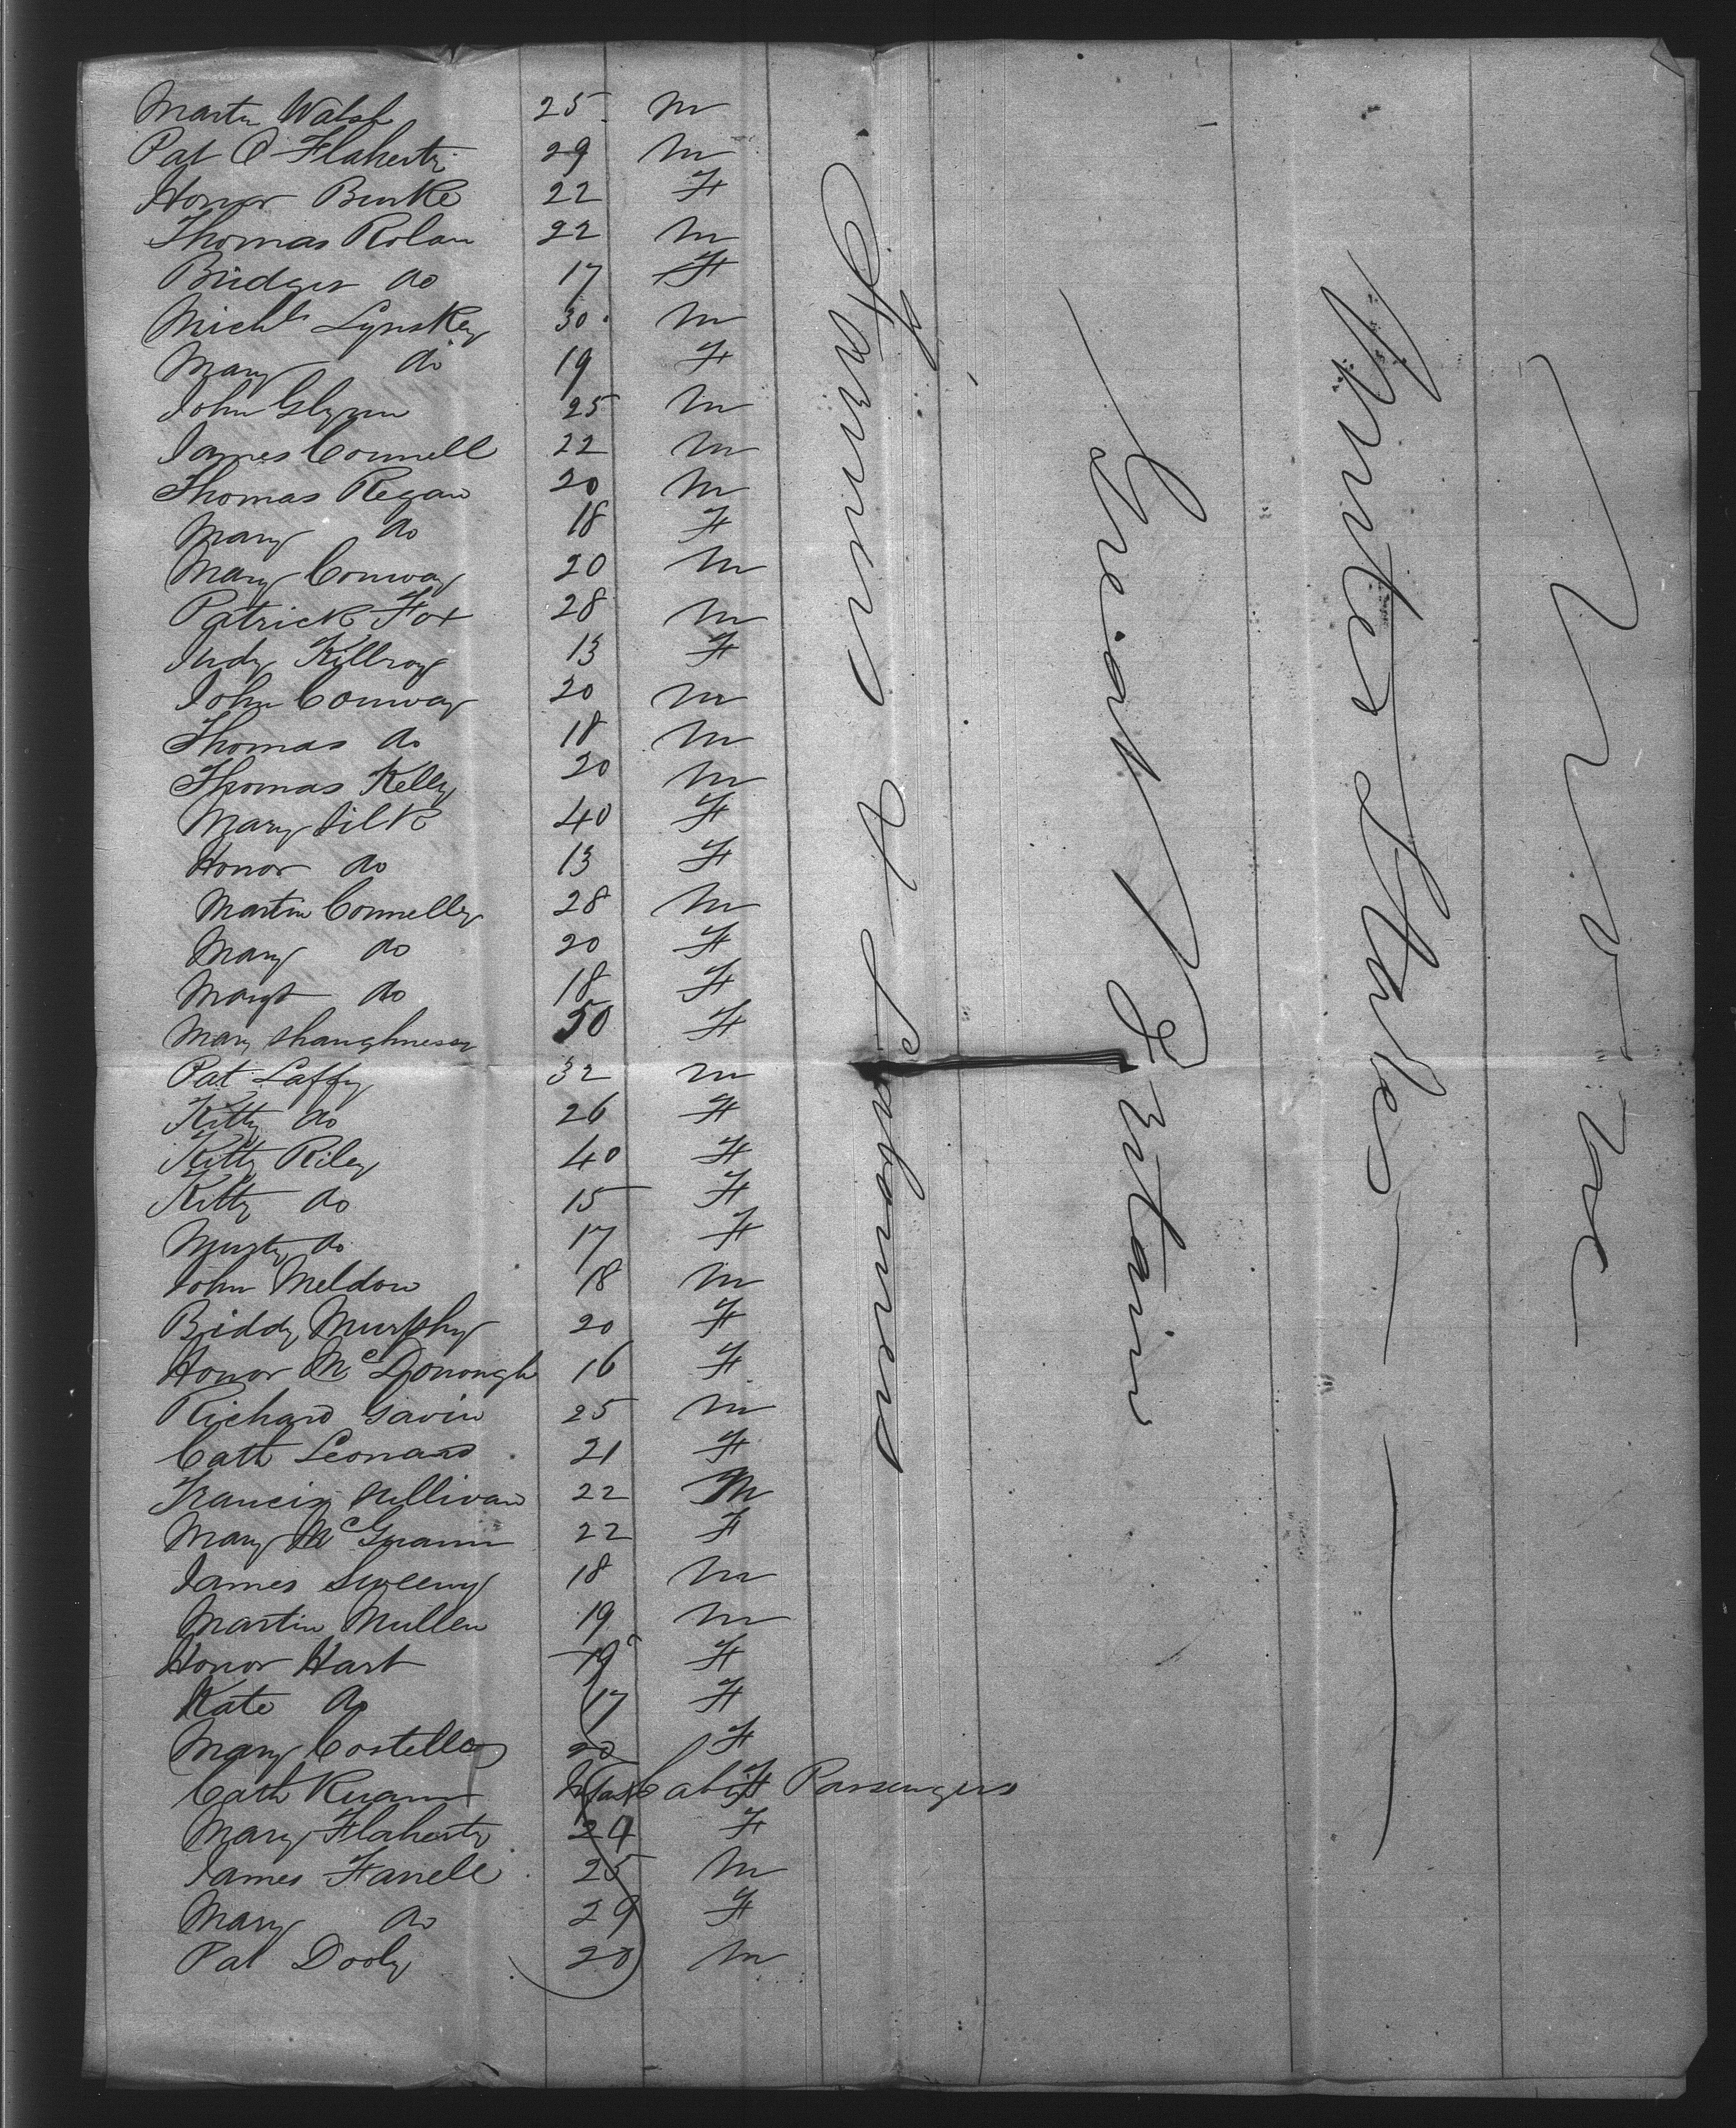 Martin Walsh 25 M
Pat O Flaherty 29 M
Honor Burke 22 F
Thomas Rolan 22 M
Bridget do 17 F
Michl Lynskey 30 M
Mary do 19 F
John Glynn 25 M
James Connell 22 M
Thomas Regan 20 M
Mary do 18 F
Mary Conway 20 M
Patrick Fox 28 M
Judy Killroy 13 F
John Conway 20 M
Thomas do 18 M
Thomas Kelly 20 M
Mary Silk 40 F
Honor do 13 F
Martin Connelly 28 M
Mary do 20 F
Margt do 18 F
Mary Shaughnessy 50 F
Pat Laffy 32 M
Kitty do 26 F
Kitty Riley 40 F
Kitty do 15 F
do 17 F
John Meldon 18 M
Biddy Murphy 20 F
Honor McDonough 16 F
Richard Gavin 25 M
Cath Leonard 21 F
Francis Sullivan 22 M
Mary McGrann 22 F
James Sweeny 18 M
Martin Mullen 19 M
Honor Hart 19 F
Kate do 17 F
Mary Costello 20 F
Cath Ruann F
Cabin Passengers
Mary Flaherty 24 F
James Farrell 25 M
Mary do 29 F
Pat Dooly 20 M
Farmers & Labourers
Great Britain
United States